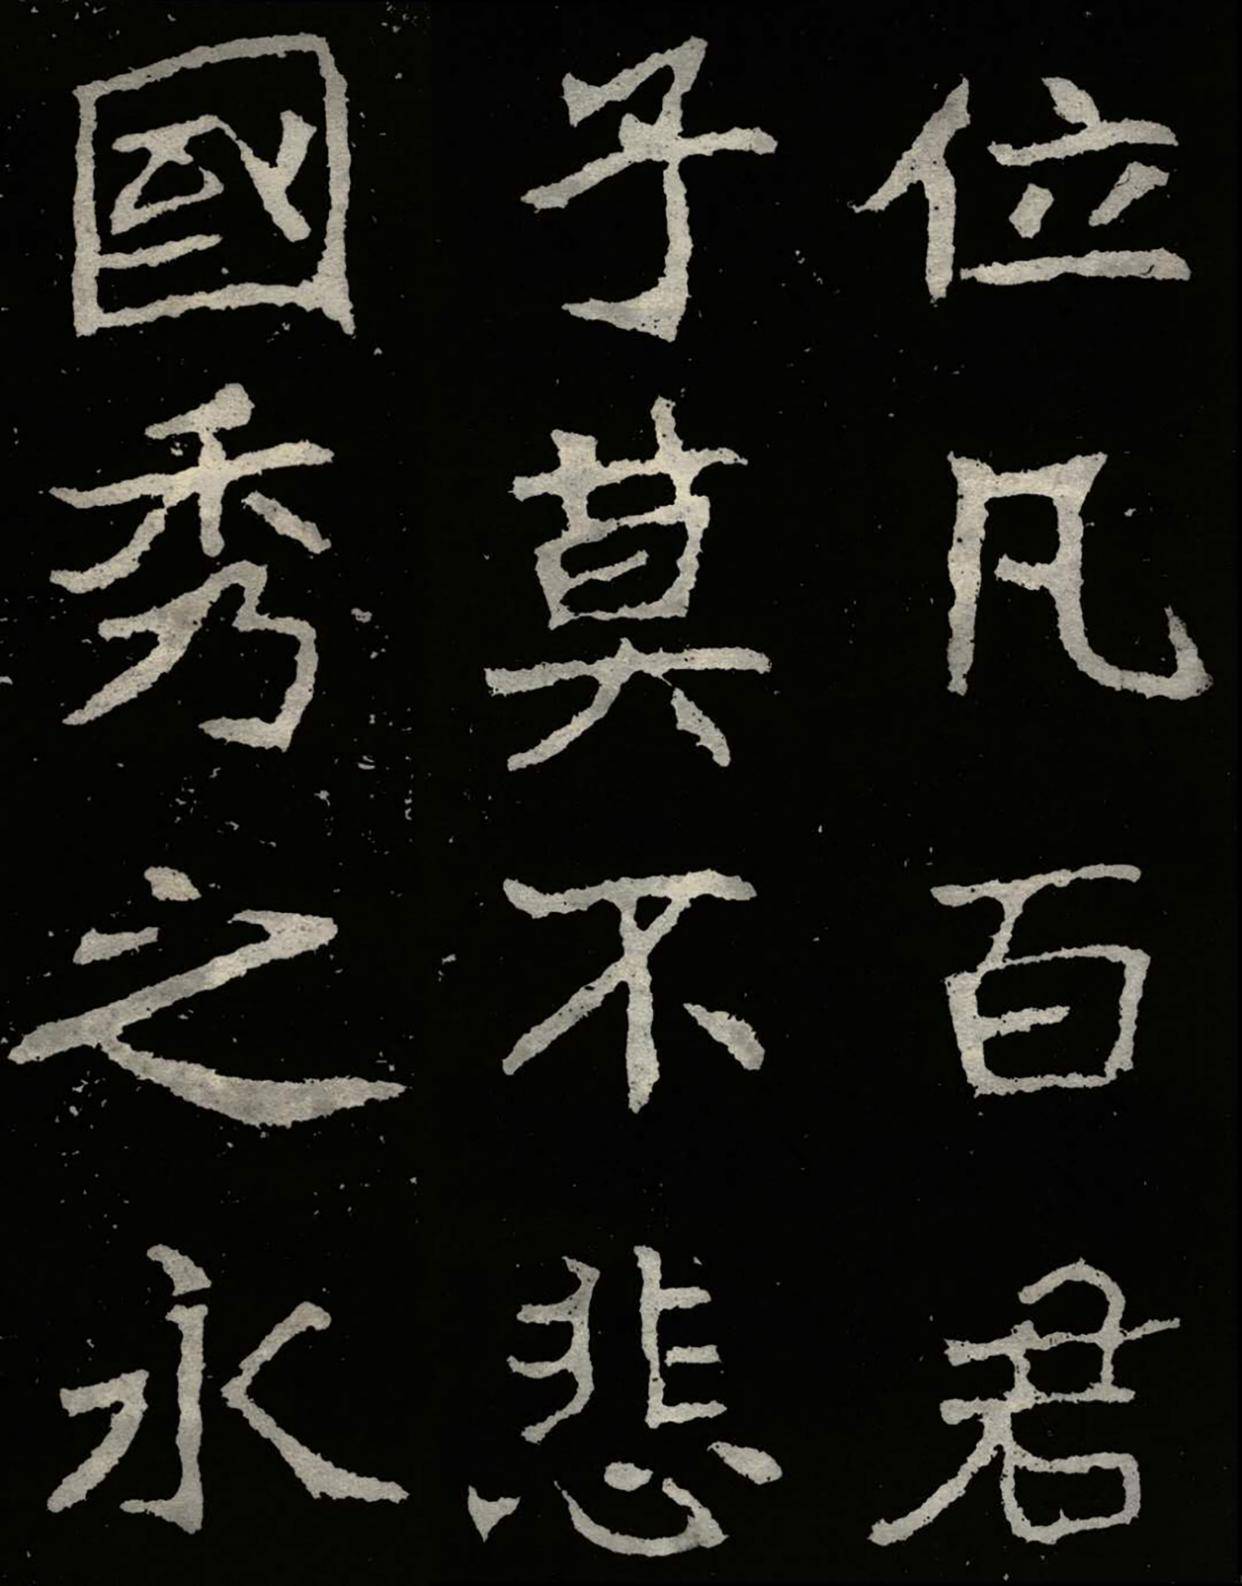 位凡百君
子莫不悲
國秀之永